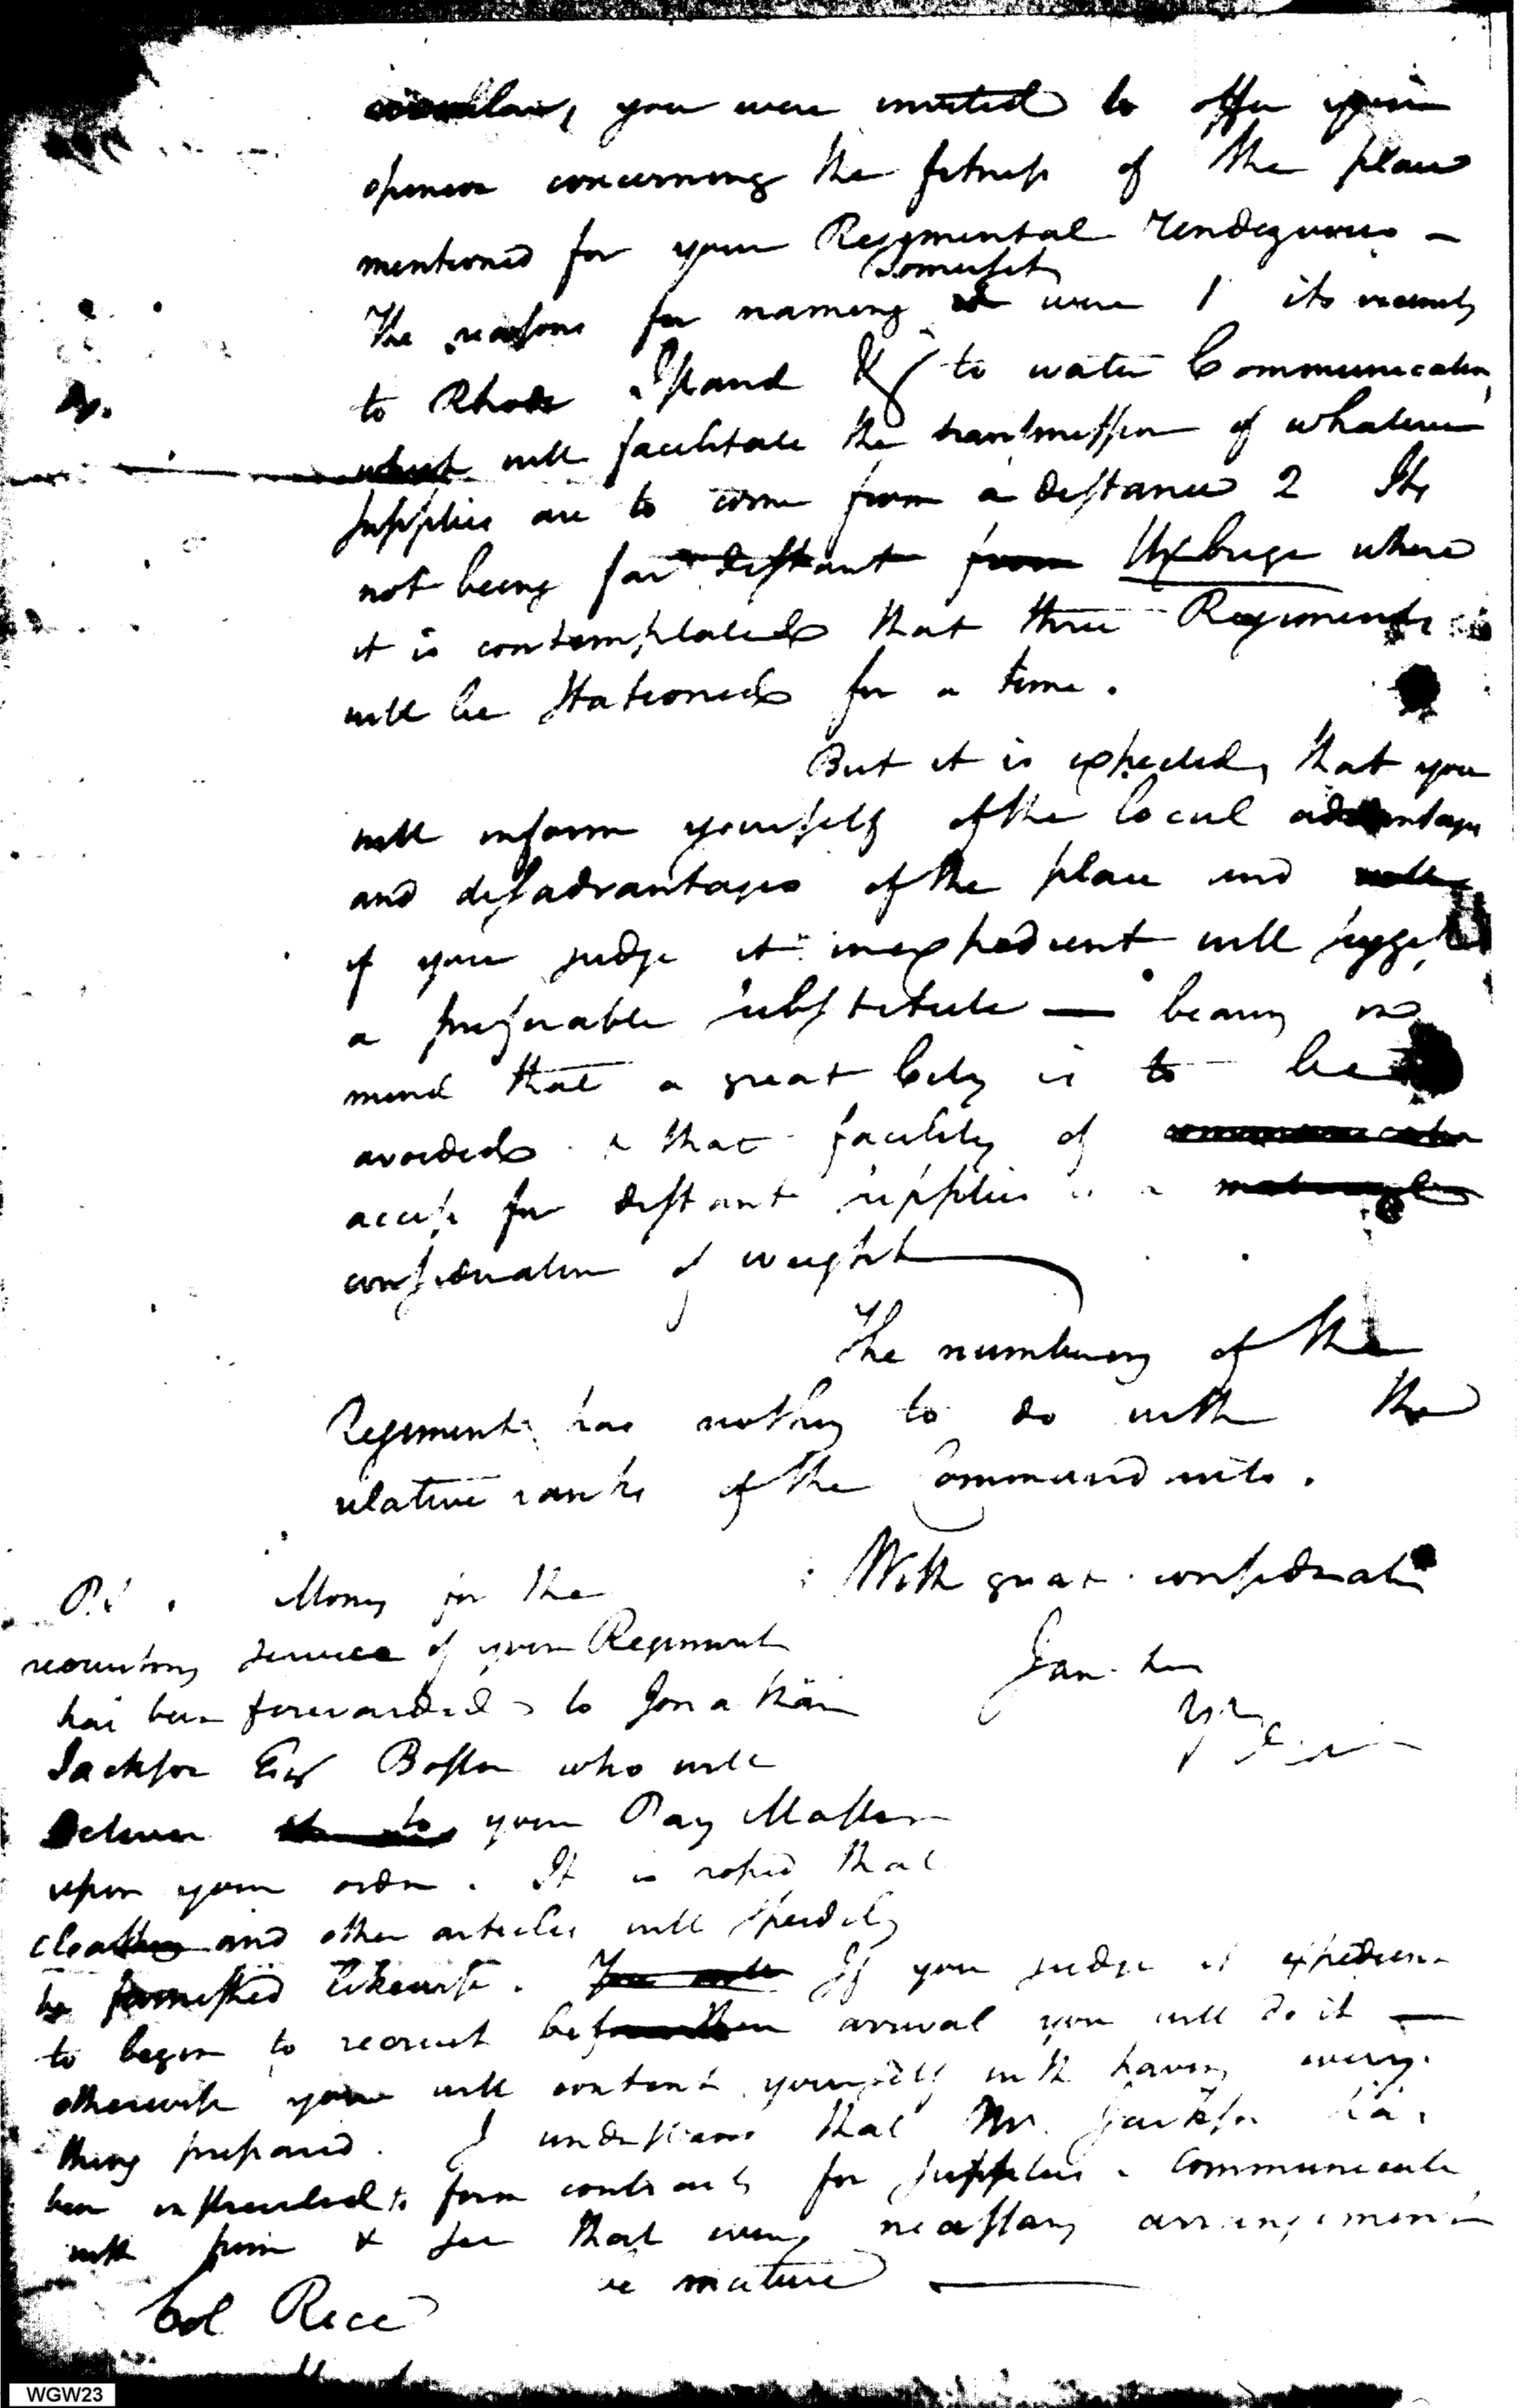 circular, you were invited to offer your
opinion concerning the fitness of the place
mentioned for your Regimental rendezvous —
Somerset
The reasons for naming it were 1 its vicinity
to Rhode Island & to water Communication,
which will facilitate the transmission of whatever
supplies are to come from a distance 2 Its
not being far distant from Uxbrige where
it is contemplated that three Regiments
will be stationed for a time.
But it is expected, that you
will inform yourself of the local advantages
and disadvantages of the place and will
if you judge it inexpedient will suggest
a preferable substitute — bearing in
mind that a great City is to be
avoided & that facility of communication
access for distant supplies is a material
consideration of weight
The numbering of the
Regiments has nothing to do with the
relative ranks of the Commandants.
With great consideration
I am Sir
P.S. Money for the
recruiting service of your Regiment
has been forwarded to Jonathan
Jackson Esq Boston who will
deliver it to your Pay Master
upon your order. It is hoped that
cloathing and other articles will speedily
be furnished likewise. You will If you judge it expedient
to begin to recruit before their arrival you will do it —
otherwise you will content yourself with having every
thing prepared. I understand that Mr. Jackson has
been instructed to form contracts for supplies. Communicate
with him & see that every necessary arrangement
be mature
Col Rice
WGW23